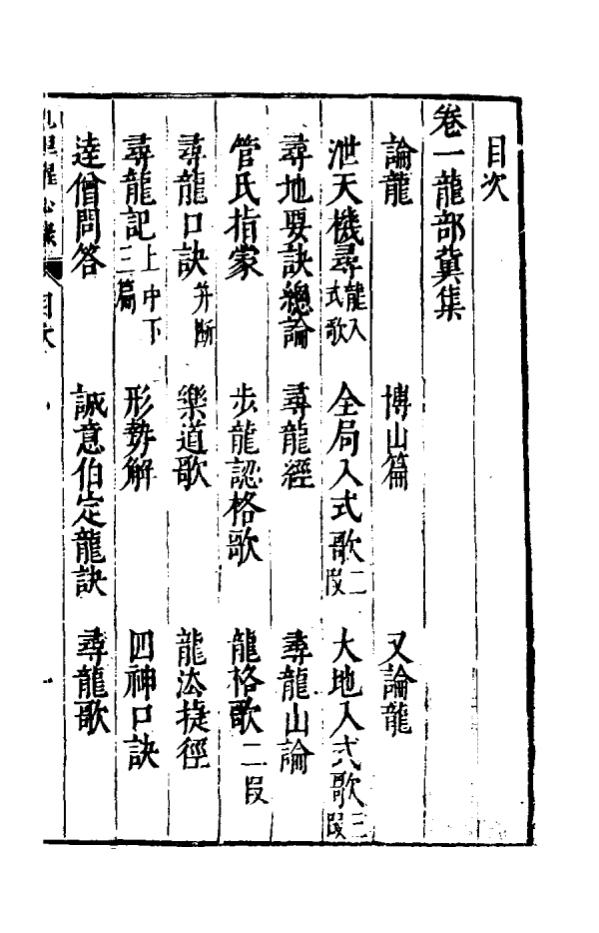 目次
卷一龍部冀集
論龍　博山篇　又論龍
泄天機尋龍入式歌　全局入式歌二段　大地入式歌三段
尋地要訣總論　尋龍經　尋龍山論
管氏指蒙　步龍認格歌　龍格歌二段
尋龍口訣并斷　樂道歌　龍法捷徑
尋龍記上中下三篇　形勢解　四神口訣
達僧問答　誠意伯定龍訣　尋龍歌
目次